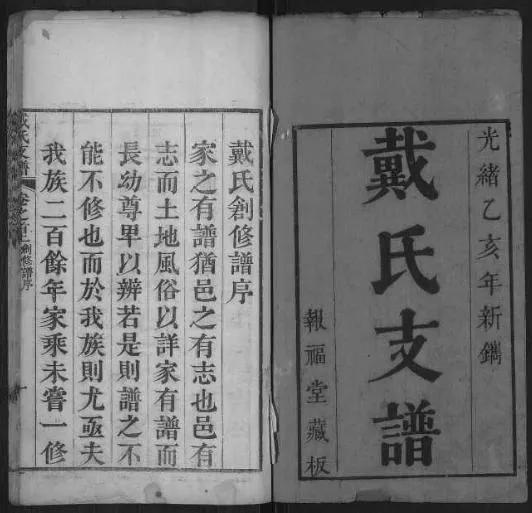 光緒乙亥年新鐫
戴氏支譜
報福堂藏板
戴氏創修譜序
家之有譜猶邑之有志也邑有
志而土地風俗以詳家有譜而
長幼尊卑以辨若是則譜之不
能不修也而於我族則尤亟夫
我族二百餘年家乘未嘗一修
戴氏支譜
卷之首
創修譜序